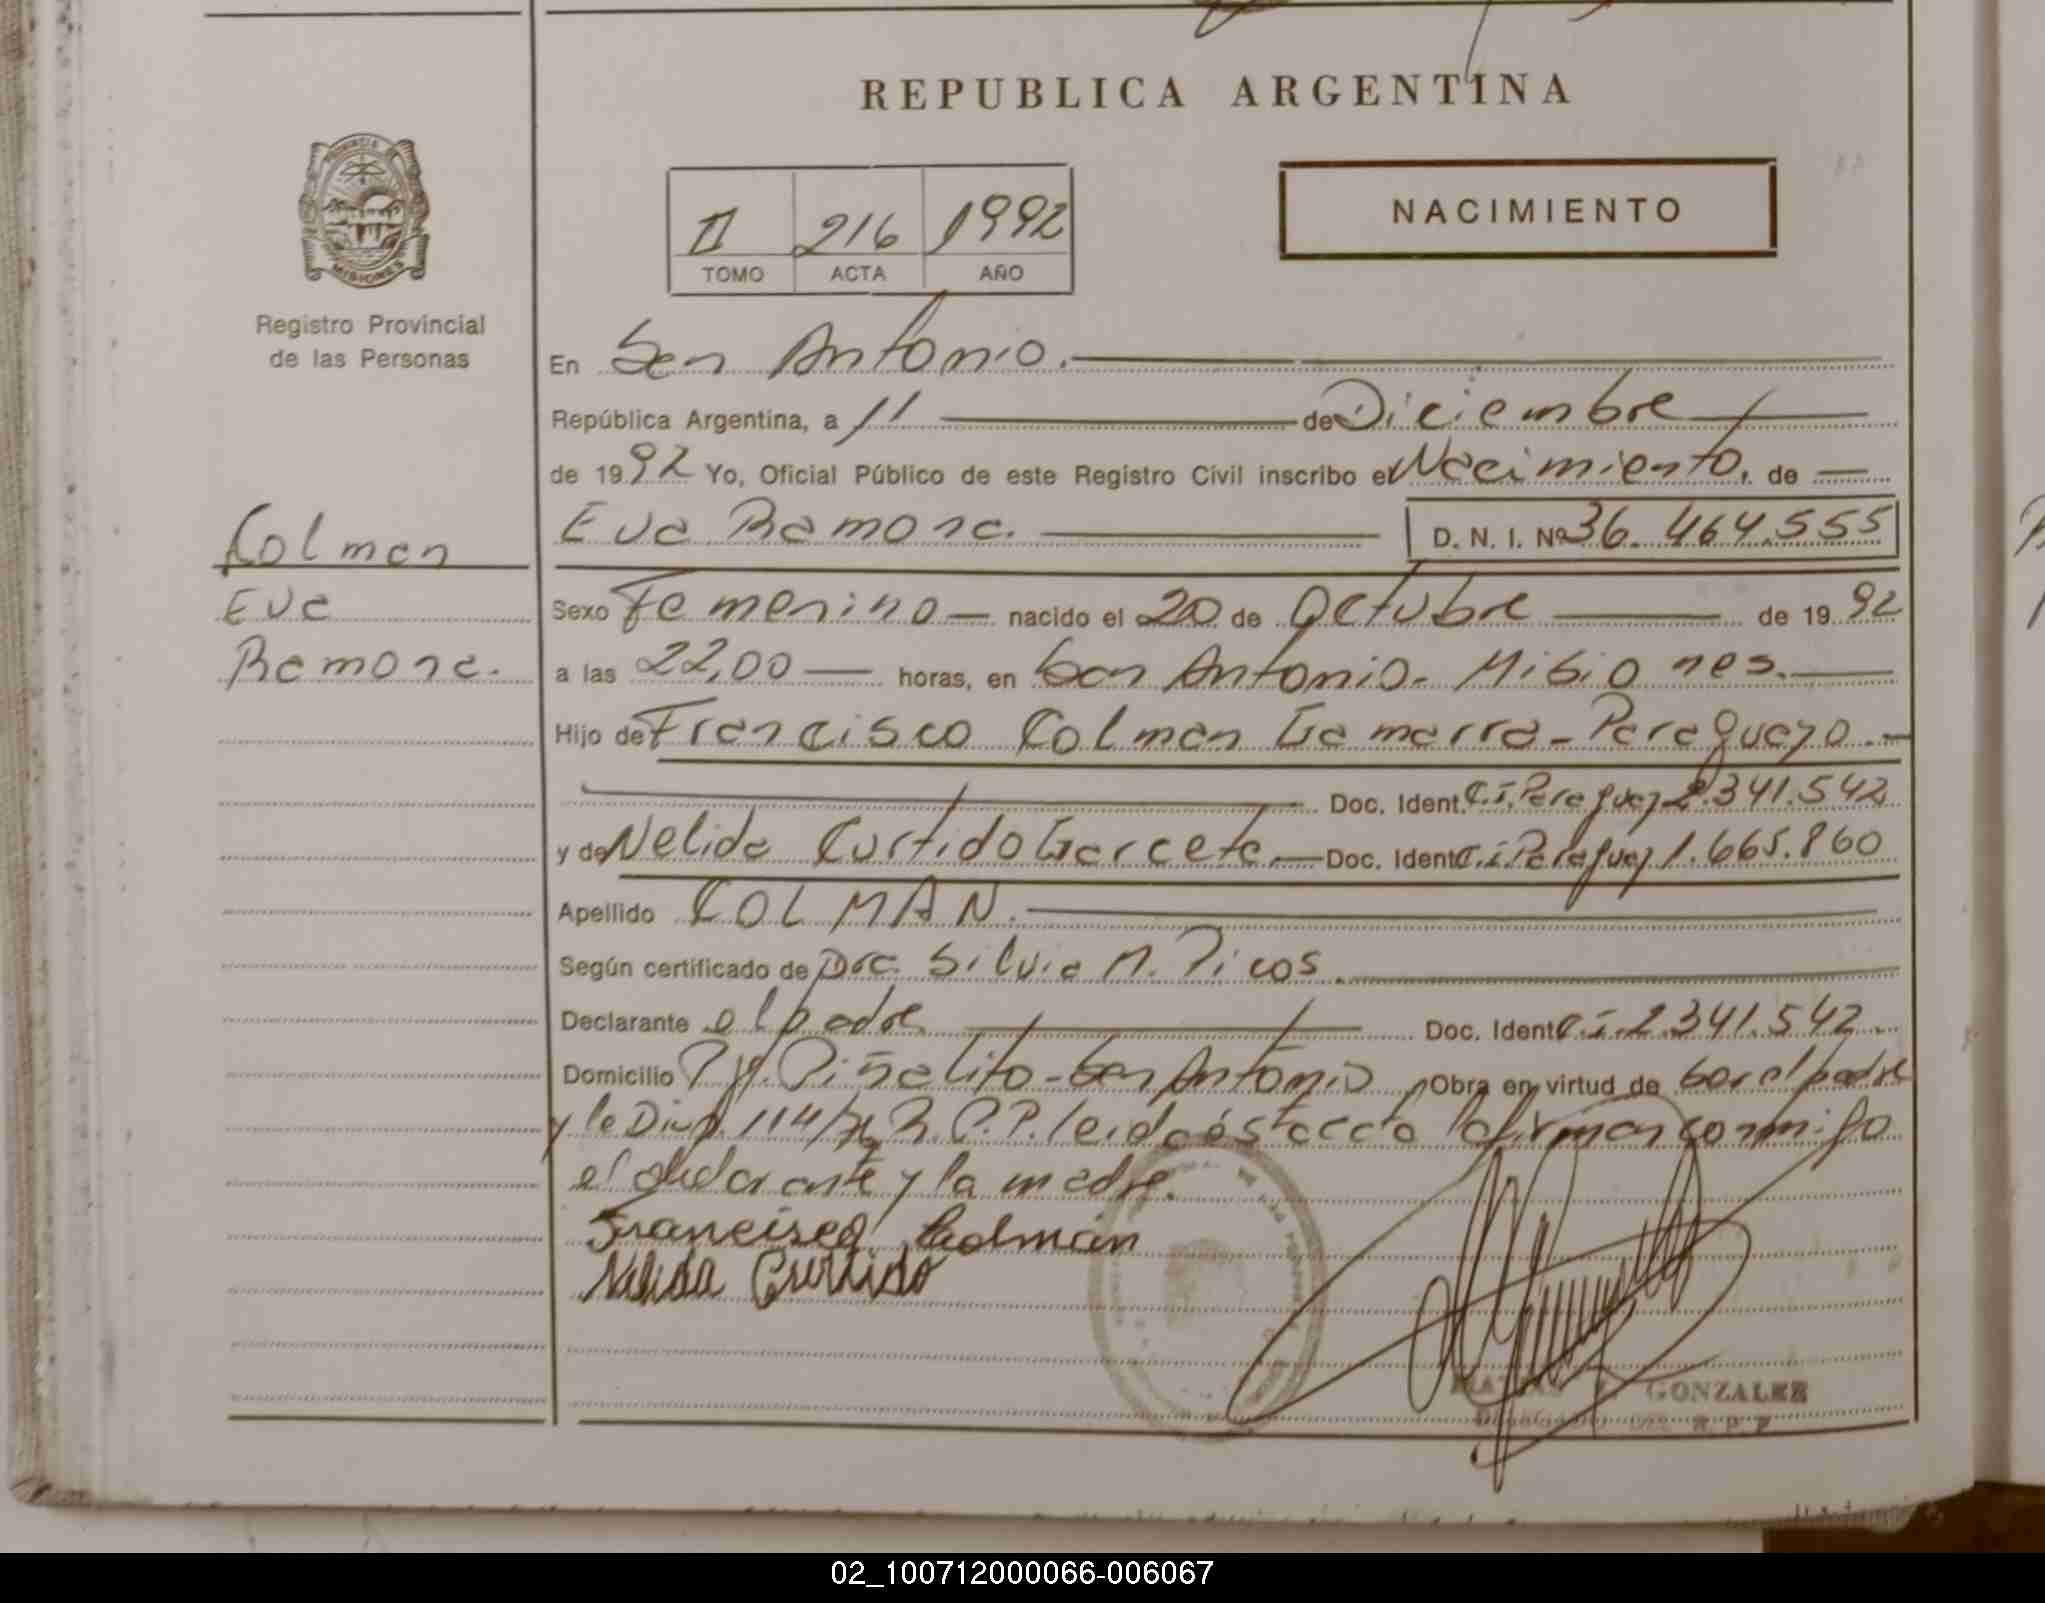 REPUBLICA ARGENTINA
PROVINCIA DE MISIONES
Registro Provincial
de las Personas
II 216 1992
TOMO ACTA AÑO
NACIMIENTO
En San Antonio.
República Argentina, a 11 de Diciembre
de 1992 Yo, Oficial Público de este Registro Civil inscribo el Nacimiento, de
Colman
Eva
Ramona.
Eva Ramona. D. N. I. Nº 36.464.555
Sexo Femenino nacido el 20 de Octubre de 1992
a las 22,00 horas, en San Antonio - Misiones.
Hijo de Francisco Colman Gamarra - Paraguayo.
Doc. Ident. C.I. Paraguay 2.341.542
y de Nelida Curtido Garcete. Doc. Ident. C.I. Paraguay 1.665.860
Apellido COLMAN.
Según certificado de Dra. Silvia M. Picos.
Declarante el padre Doc. Ident. C.I. 2.341.542
Domicilio Piñalito - San Antonio Obra en virtud de ser el padre
y la Disp. 114/ R.P.P. leida ésta acta la firman conmigo
el declarante y la madre.
Francisco Colmán
Nelida Curtido
GONZALEZ
R. P. P.
02_100712000066-006067